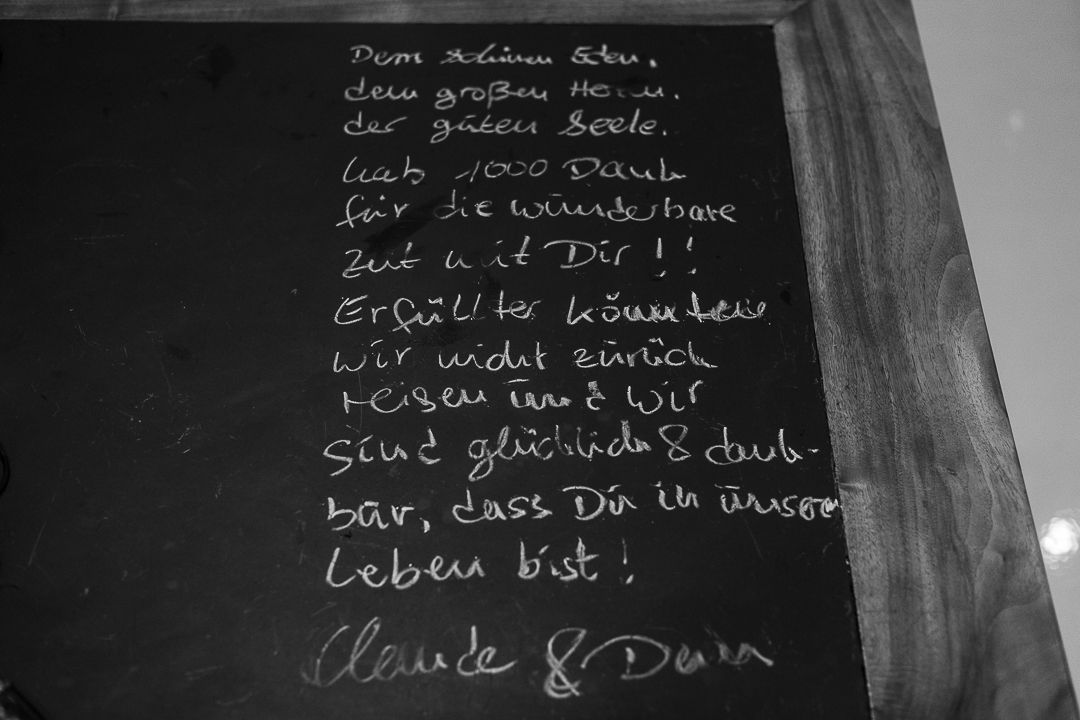 Dem schönen Eden,
dem großen Herrn.
der guten Seele.
hab 1000 Dank
für die wunderbare
Zeit mit Dir!!
Erfüllter könnten
wir nicht zurück
reisen und wir
sind glücklich & dank-
bar, dass Du in unserem
Leben bist!
Claude &